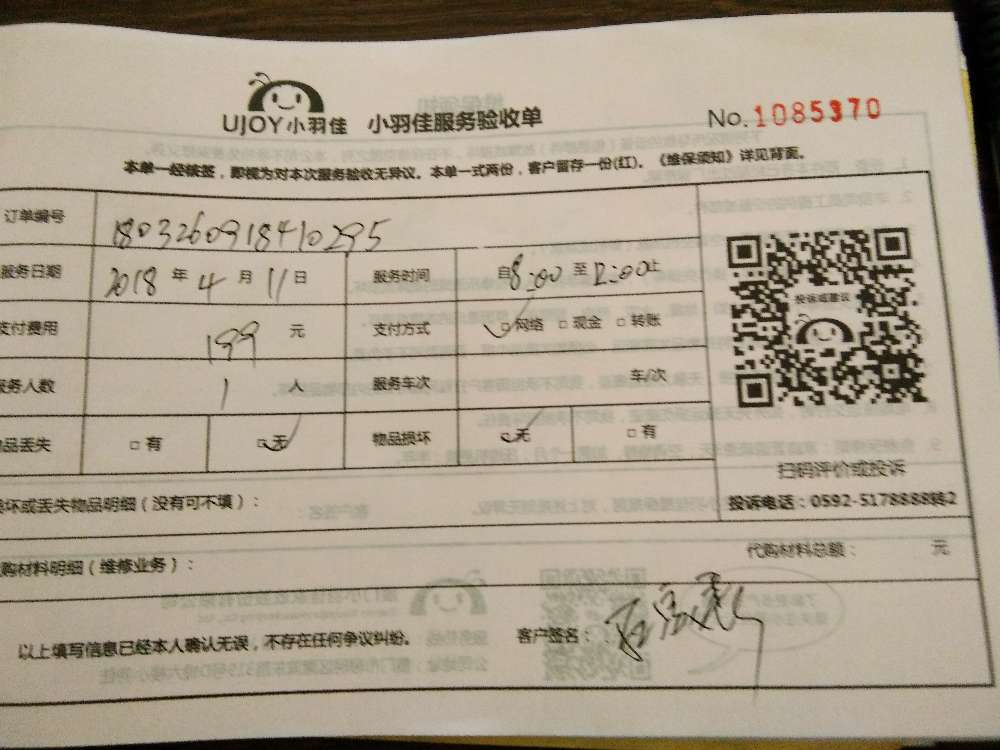 UJOY小羽佳 小羽佳服务验收单 No.1085370
本单一经核签，即视为对本次服务验收无异议。本单一式两份，客户留存一份(红)。《维保须知》详见背面。
订单编号 1803260918410295
服务日期 2018年4月11日 服务时间 自8:00至12:00止
支付费用 199元 支付方式 网络 现金 转账
服务人数 1人 服务车次 车/次
物品丢失 有 无 物品损坏 无 有
投诉或建议
扫码评价或投诉
投诉电话：0592-5178888转2
损坏或丢失物品明细（没有可不填）：
代购材料明细（维修业务）： 代购材料总额： 元
以上填写信息已经本人确认无误，不存在任何争议纠纷。 客户签名：